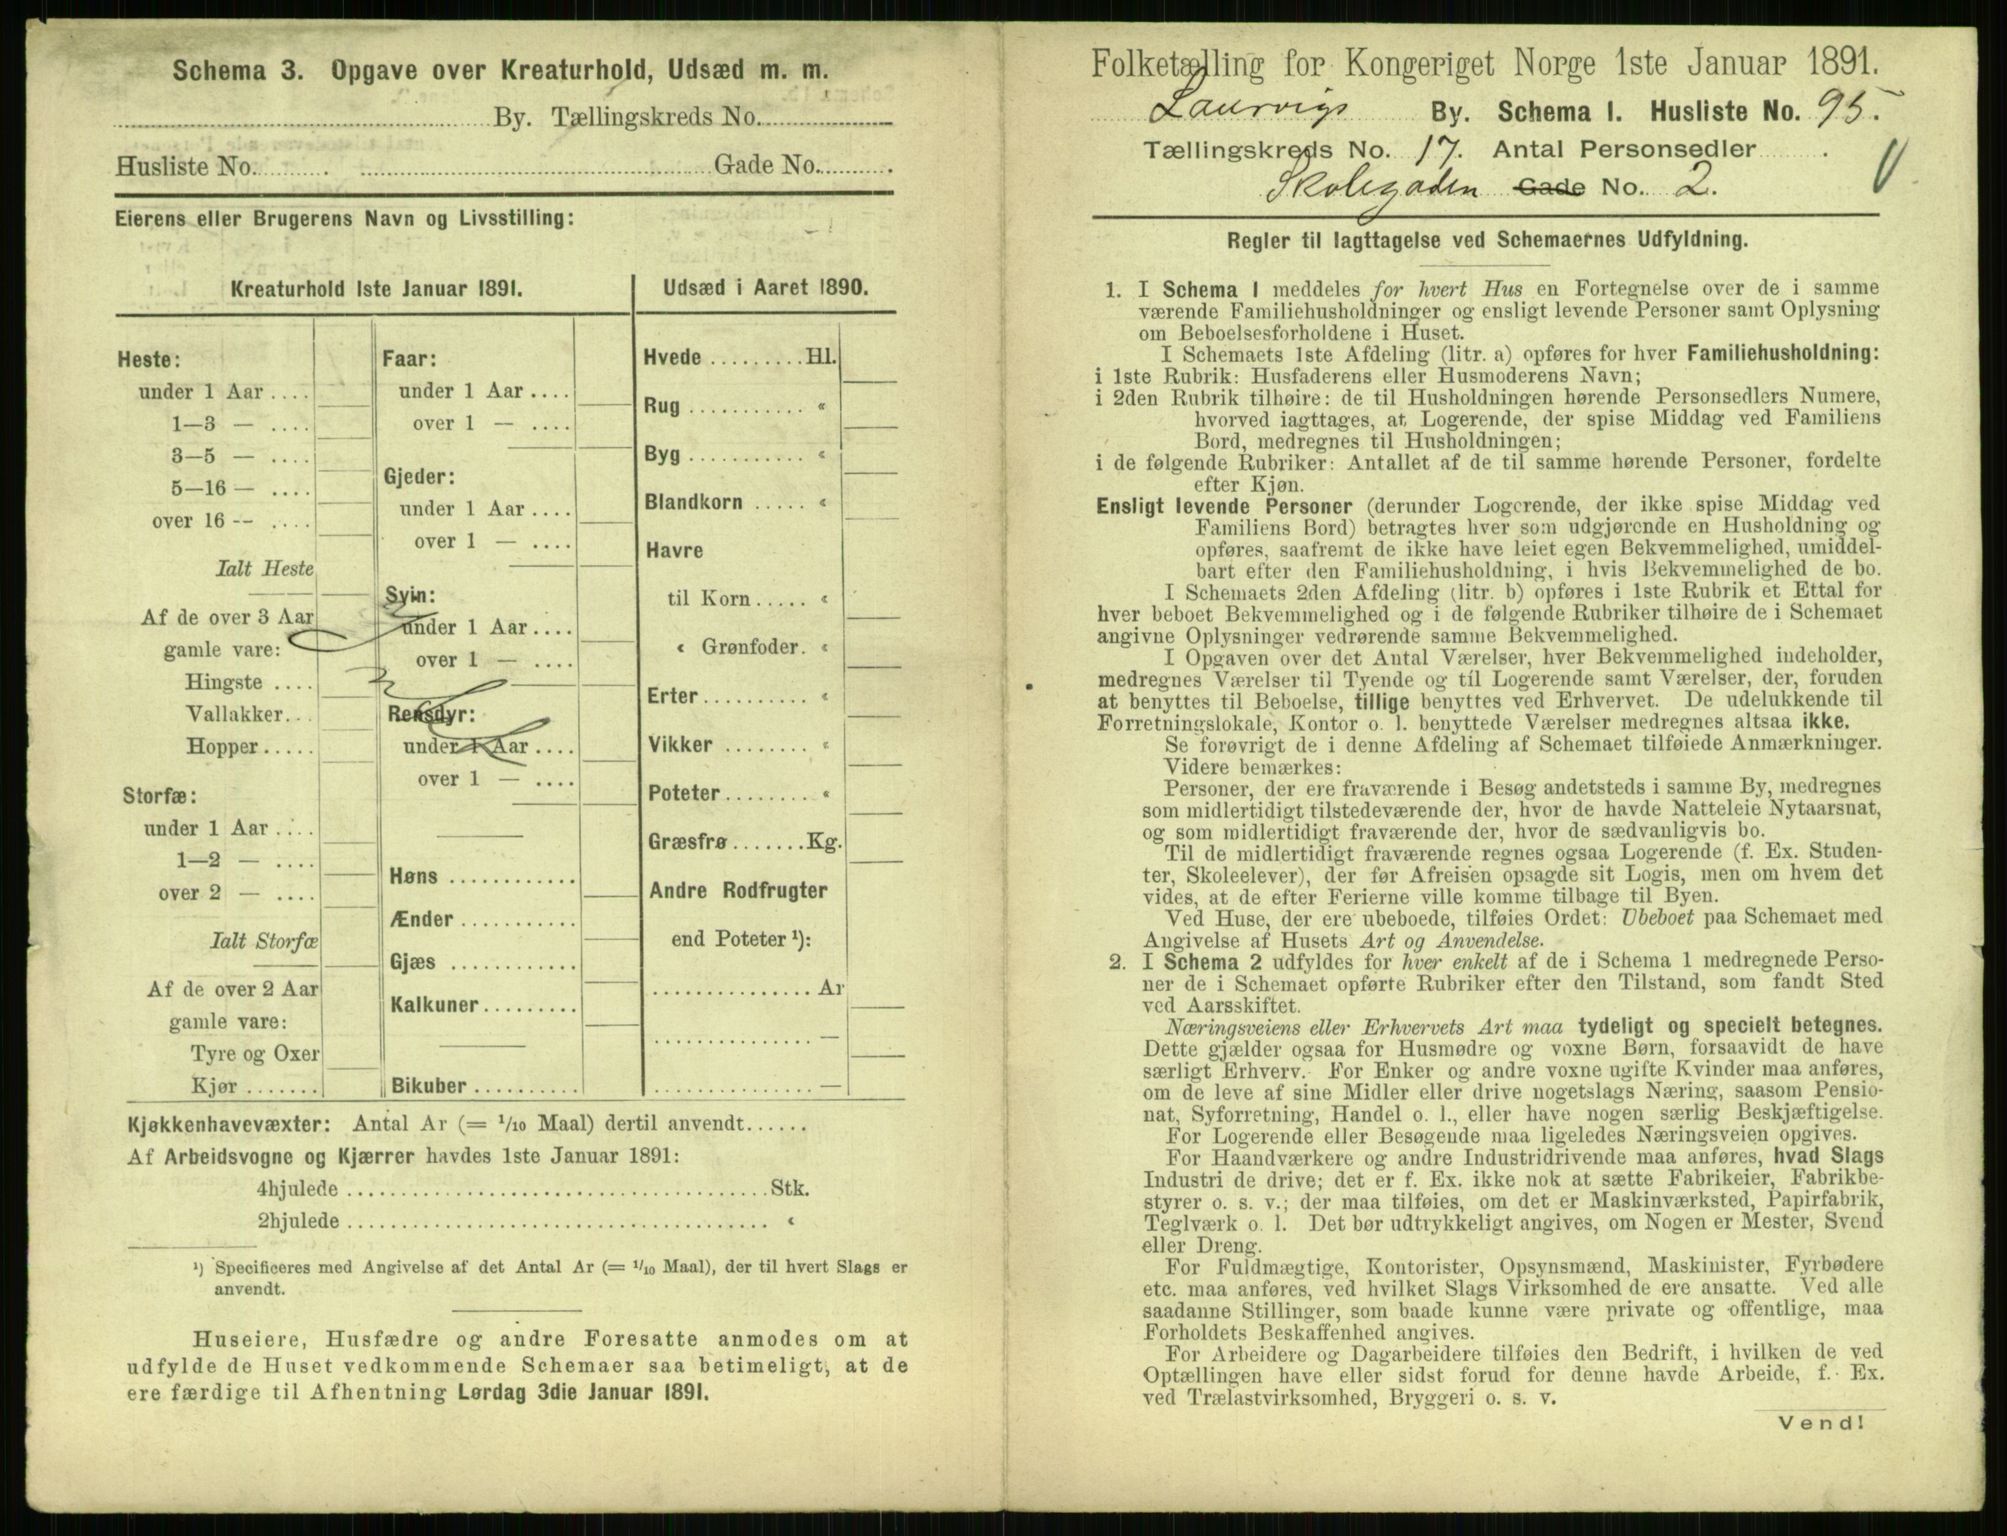 Schema 3. Opgave over Kreaturhold, Udsæd m. m.
By. Tællingskreds No.
Husliste No. Gade No.
Eierens eller Brugerens Navn og Livsstilling:
Kreaturhold 1ste Januar 1891.
Heste:
under 1 Aar
1—3 —
3—5 —
5—16 —
over 16 —
Ialt Heste
Af de over 3 Aar
gamle vare:
Hingste
Vallakker
Hopper
Storfæ:
under 1 Aar
1—2 —
over 2 —
Ialt Storfæ
Af de over 2 Aar
gamle vare:
Tyre og Oxer
Kjør
Faar:
under 1 Aar
over 1 —
Gjeder:
under 1 Aar
over 1 —
Svin:
under 1 Aar
over 1 —
Rensdyr:
under 1 Aar
over 1 —
Høns
Ænder
Gjæs
Kalkuner
Bikuber
Udsæd i Aaret 1890.
Hvede Hl.
Rug «
Byg «
Blandkorn «
Havre
til Korn «
« Grønfoder. «
Erter «
Vikker «
Poteter «
Græsfrø Kg.
Andre Rodfrugter
end Poteter ¹):
Ar
—
—
Kjøkkenhavevæxter: Antal Ar (= 1/10 Maal) dertil anvendt
Af Arbeidsvogne og Kjærrer havdes 1ste Januar 1891:
4hjulede Stk.
2hjulede «
¹) Specificeres med Angivelse af det Antal Ar (= 1/10 Maal), der til hvert Slags er
anvendt.
Huseiere, Husfædre og andre Foresatte anmodes om at
udfylde de Huset vedkommende Schemaer saa betimeligt, at de
ere færdige til Afhentning Lørdag 3die Januar 1891.
Folketælling for Kongeriget Norge 1ste Januar 1891.
Laurvigs By. Schema 1. Husliste No. 95.
Tællingskreds No. 17. Antal Personsedler .
Skolegaden Gade No. 2.
Regler til Iagttagelse ved Schemaernes Udfyldning.
1. I Schema 1 meddeles for hvert Hus en Fortegnelse over de i samme
værende Familiehusholdninger og ensligt levende Personer samt Oplysning
om Beboelsesforholdene i Huset.
I Schemaets 1ste Afdeling (litr. a) opføres for hver Familiehusholdning:
i 1ste Rubrik: Husfaderens eller Husmoderens Navn;
i 2den Rubrik tilhøire: de til Husholdningen hørende Personsedlers Numere,
hvorved iagttages, at Logerende, der spise Middag ved Familiens
Bord, medregnes til Husholdningen;
i de følgende Rubriker: Antallet af de til samme hørende Personer, fordelte
efter Kjøn.
Ensligt levende Personer (derunder Logerende, der ikke spise Middag ved
Familiens Bord) betragtes hver som udgjørende en Husholdning og
opføres, saafremt de ikke have leiet egen Bekvemmelighed, umiddel-
bart efter den Familiehusholdning, i hvis Bekvemmelighed de bo.
I Schemaets 2den Afdeling (litr. b) opføres i 1ste Rubrik et Ettal for
hver beboet Bekvemmelighed og i de følgende Rubriker tilhøire de i Schemaet
angivne Oplysninger vedrørende samme Bekvemmelighed.
I Opgaven over det Antal Værelser, hver Bekvemmelighed indeholder,
medregnes Værelser til Tyende og til Logerende samt Værelser, der, foruden
at benyttes til Beboelse, tillige benyttes ved Erhvervet. De udelukkende til
Forretningslokale, Kontor o. l. benyttede Værelser medregnes altsaa ikke.
Se forøvrigt de i denne Afdeling af Schemaet tilføiede Anmærkninger.
Videre bemærkes:
Personer, der ere fraværende i Besøg andetsteds i samme By, medregnes
som midlertidigt tilstedeværende der, hvor de havde Natteleie Nytaarsnat,
og som midlertidigt fraværende der, hvor de sædvanligvis bo.
Til de midlertidigt fraværende regnes ogsaa Logerende (f. Ex. Studen-
ter, Skoleelever), der før Afreisen opsagde sit Logis, men om hvem det
vides, at de efter Ferierne ville komme tilbage til Byen.
Ved Huse, der ere ubeboede, tilføies Ordet: Ubeboet paa Schemaet med
Angivelse af Husets Art og Anvendelse.
2. I Schema 2 udfyldes for hver enkelt af de i Schema 1 medregnede Perso-
ner de i Schemaet opførte Rubriker efter den Tilstand, som fandt Sted
ved Aarsskiftet.
Næringsveiens eller Erhvervets Art maa tydeligt og specielt betegnes.
Dette gjælder ogsaa for Husmødre og voxne Børn, forsaavidt de have
særligt Erhverv. For Enker og andre voxne ugifte Kvinder maa anføres,
om de leve af sine Midler eller drive nogetslags Næring, saasom Pensio-
nat, Syforretning, Handel o. l., eller have nogen særlig Beskjæftigelse.
For Logerende eller Besøgende maa ligeledes Næringsveien opgives.
For Haandværkere og andre Industridrivende maa anføres, hvad Slags
Industri de drive; det er f. Ex. ikke nok at sætte Fabrikeier, Fabrikbe-
styrer o. s. v.; der maa tilføies, om det er Maskinværksted, Papirfabrik,
Teglværk o. l. Det bør udtrykkeligt angives, om Nogen er Mester, Svend
eller Dreng.
For Fuldmægtige, Kontorister, Opsynsmænd, Maskinister, Fyrbødere
etc. maa anføres, ved hvilket Slags Virksomhed de ere ansatte. Ved alle
saadanne Stillinger, som baade kunne være private og offentlige, maa
Forholdets Beskaffenhed angives.
For Arbeidere og Dagarbeidere tilføies den Bedrift, i hvilken de ved
Optællingen have eller sidst forud for denne havde Arbeide, f. Ex.
ved Trælastvirksomhed, Bryggeri o. s. v.
Vend!